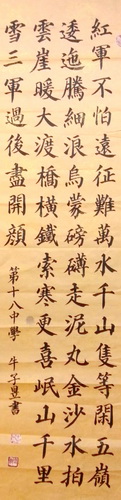 紅軍不怕遠征難萬水千山隻等閑五嶺
逶迤騰細浪烏蒙磅礴走泥丸金沙水拍
雲崖暖大渡橋橫鐵索寒更喜岷山千里
雪三軍過後盡開顏
第十八中學 牛子昱書